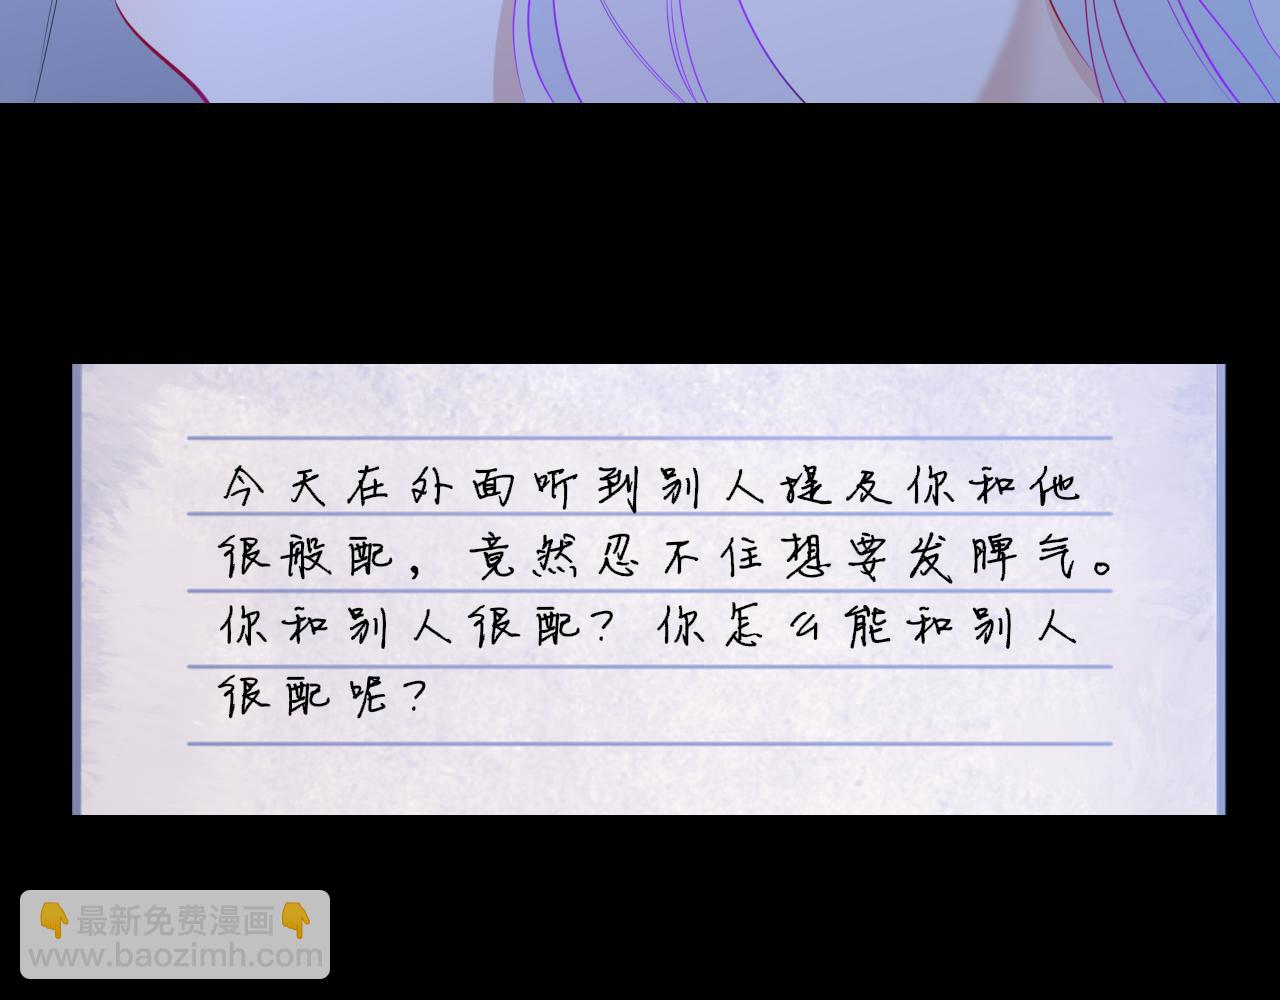 今天在外面听到别人提及你和他
很般配，竟然忍不住想要发脾气。
你和别人很配？你怎么能和别人
很配呢？
👇最新免费漫画👇
www.baozimh.com